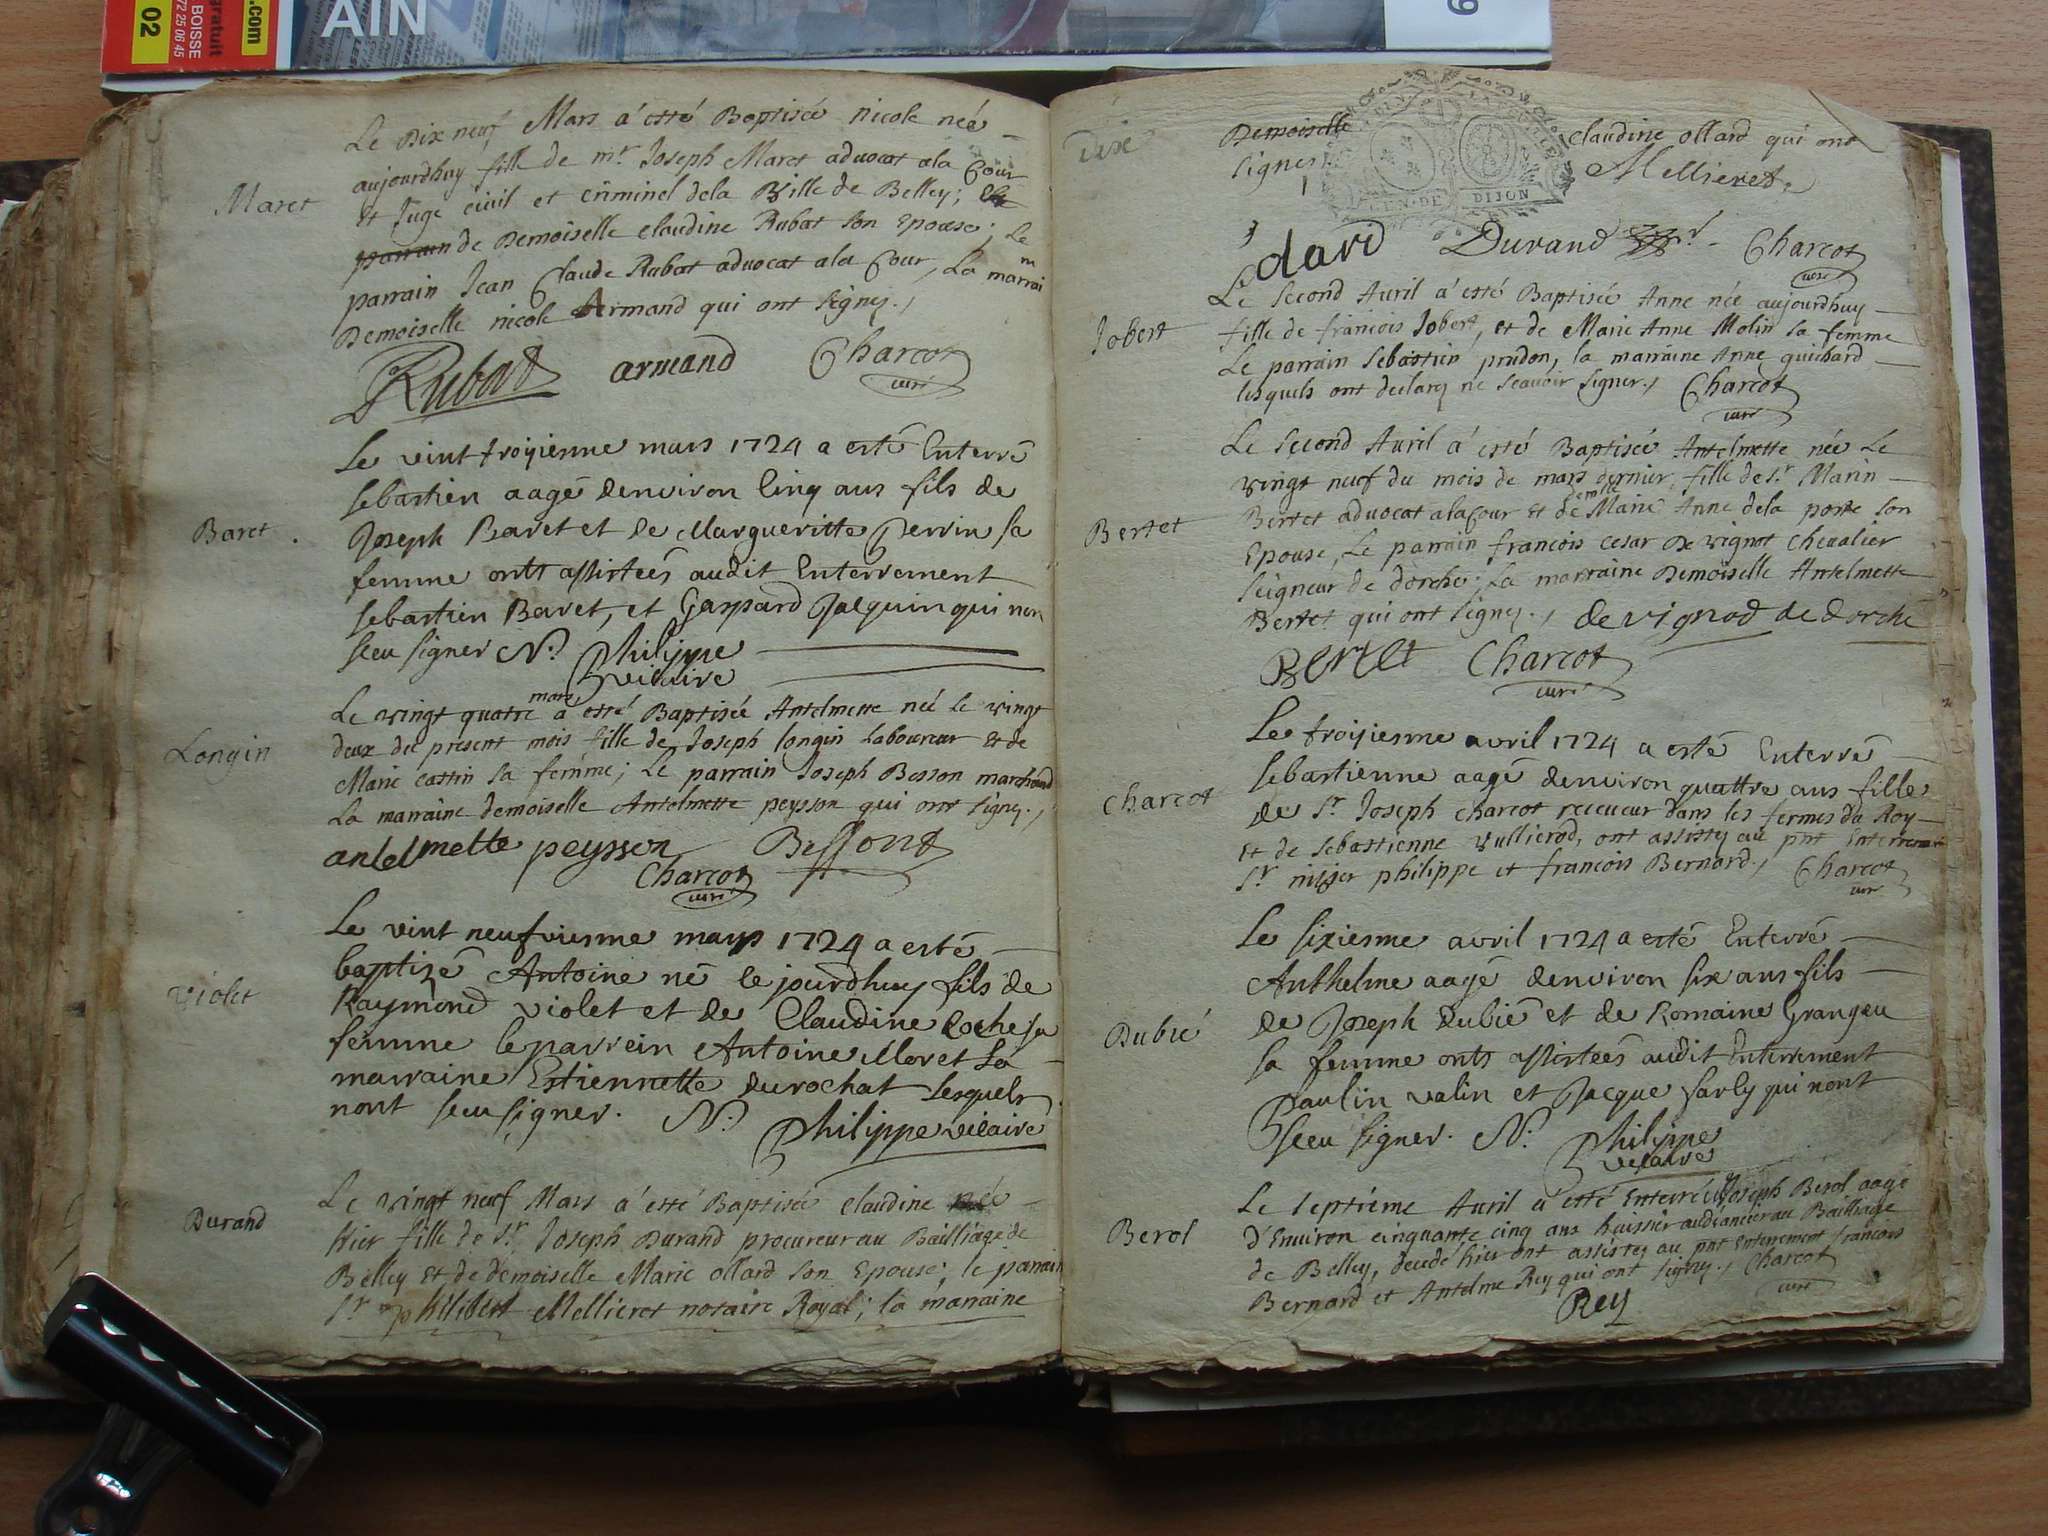 .com
gratuit
BOISSE
72 25 06 45
02
AIN
9
Le Dix neuf Mars a' esté Baptisée nicole née
aujourdhuy fille de mr Joseph Maret advocat ala Cour
Maret
et Juge civil et criminel dela Ville de Belley;
parrain de Demoiselle claudine Rubat son Epouse; Le
parrain Jean Claude Rubat advocat ala Cour, La marrain
Demoiselle nicole Armand qui ont signez.,
Rubat armand Charcot
curé
Le vint troisienme mars 1724 a esté Enterré
sebastien aagé denviron Cinq ans fils de
Baret.
Joseph Baret et de Margueritte Perrin sa
femme onts assistees audit Enterrement
sebastien Baret, et Gaspard Jacquin qui non
sceu signer N. Philippe
vicaire
Le vingt quatre mars a esté Baptisée Antelmette née le vingt
Longin
deux du present mois fille de Joseph longin Laboureur et de
Marie castin sa femme; Le parrain Joseph Besson marchand
La marraine demoiselle Antelmette peysson qui ont signez.,
antelmette peysson Bessont
Charcot
curé
Le vint neufviesme mars 1724 a esté
baptizé Antoine né le jourdhuy fils de
violet
Raymond violet et de Claudine Coche sa
femme le parrein Antoine Moret La
marraine Estiennette durochat Lesquels
nont sceu signer. N. Philippe vicaire
Le vingt neuf Mars a' esté Baptisée claudine née
Durand
hier fille de sr. Joseph Durand procureur au Bailliage de
Belley et de demoiselle Marie ollard son Epouse; le parrain
sr philibert Mellieret notaire Royal; la marraine
Dix
Demoiselle claudine ollard qui ont
signez Mellieret
GEN. DE DIJON
olard Durand Charcot
curé
Le second Avril a' esté Baptisée Anne née aujourdhuy
Jobert
fille de francois Jobert, et de Marie Anne Molin sa femme
Le parrain sebastien prudon, la marraine Anne guichard
lesquels ont declarez ne scavoir signer., Charcot
curé
Le second Avril a' esté Baptisée Antelmette née Le
vingt neuf du mois de mars dernier, fille de sr. Marin
demlle
Bertet
Bertet advocat ala Cour et de Marie Anne dela porte son
Epouse, Le parrain francois cesar De vignot chevalier
seigneur de dorche; La marraine Demoiselle Antelmette
Bertet qui ont signez., de vignod de dorche
Bertet Charcot
curé
Le troisiesme avril 1724 a esté Enterré
sebastienne aagé denviron quattre ans fille
Charcot
de sr. Joseph Charcot receveur dans les fermes du Roy
et de sebastienne vullierod, ont assistez au pnt Enterrement
sr. misser philippe et francois Bernard., Charcot
curé
Le sixiesme avril 1724 a esté Enterré
Anthelme aagé denviron six ans fils
Dubié
de Joseph dubié et de Romaine Grangeu
sa femme onts assistees audit Enterrement
Paulin valin et Jacque sarly qui nont
sceu signer. N. Philippe
vicaire
Le septieme Avril a' esté enterré Joseph Berol aagé
Berol
d'Environ cinquante cinq ans huissier audiancier au Bailliage
de Belley, decedé hier ont assistez au pnt Enterrement francois
Bernard et Antelme Rey qui ont signez., Charcot
Rey curé